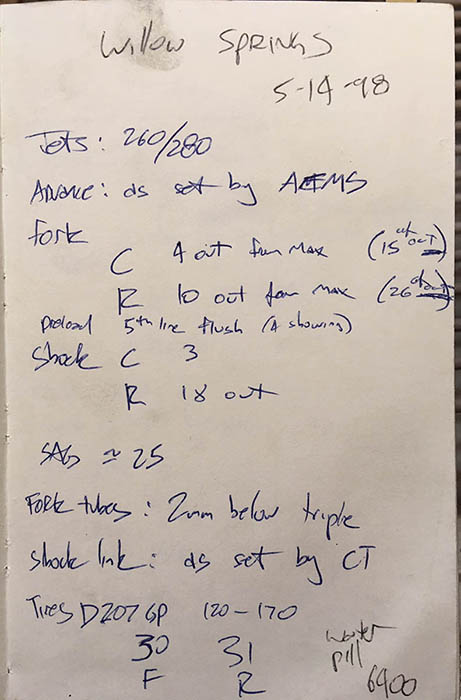 Willow SPRINGS
5-14-98
Jets: 260/280
Advance: as set by AFMS
fork
C 4 out from max (15 of out)
R 10 out from max (26 of out)
preload 5th line flush (4 showing)
Shock C 3
R 18 out
SAG ≈ 25
Fork tubes: 2mm below triple
shock link: as set by CT
Tires D207 GP 120-170
30 31
F R
water
pill
6900